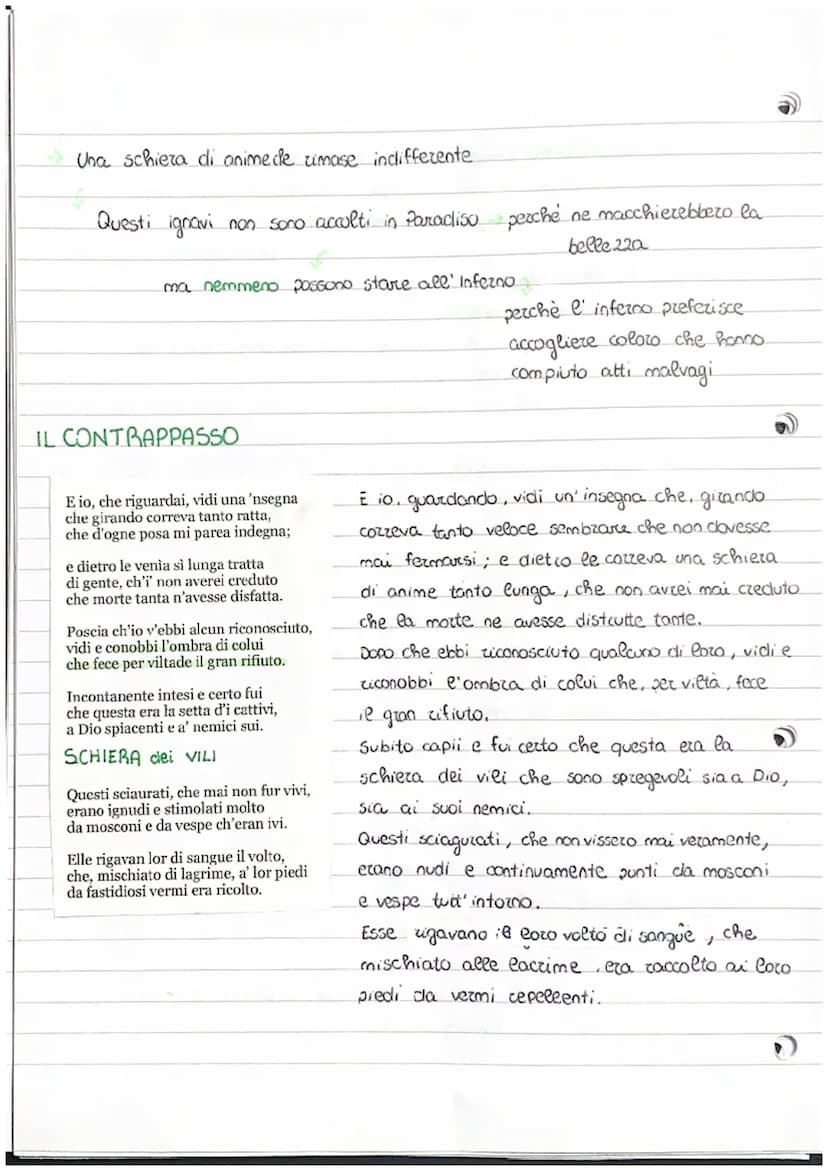 Una schiera di anime che rimase indifferente
Questi ignavi non sono accolti in Paradiso → perché ne macchierebbero la
bellezza
ma nemmeno possono stare all'Inferno
perchè l'inferno preferisce
accogliere coloro che hanno
compiuto atti malvagi
IL CONTRAPPASSO
E io, che riguardai, vidi una 'nsegna
che girando correva tanto ratta,
che d'ogne posa mi parea indegna;
e dietro le venìa sì lunga tratta
di gente, ch'i' non averei creduto
che morte tanta n'avesse disfatta.
Poscia ch'io v'ebbi alcun riconosciuto,
vidi e conobbi l'ombra di colui
che fece per viltade il gran rifiuto.
Incontanente intesi e certo fui
che questa era la setta d'i cattivi,
a Dio spiacenti e a' nemici sui.
SCHIERA dei VILI
Questi sciaurati, che mai non fur vivi,
erano ignudi e stimolati molto
da mosconi e da vespe ch'eran ivi.
Elle rigavan lor di sangue il volto,
che, mischiato di lagrime, a' lor piedi
da fastidiosi vermi era ricolto.
E io, guardando, vidi un'insegna che, girando
correva tanto veloce sembrare che non dovesse
mai fermarsi; e dietro le correva una schiera
di anime tanto lunga, che non avrei mai creduto
che la morte ne avesse distrutte tante.
Dopo che ebbi riconosciuto qualcuno di loro, vidi e
riconobbi l'ombra di colui che, per viltà, fece
il gran rifiuto.
Subito capii e fui certo che questa era la
schiera dei vili che sono spregevoli sia a Dio,
sia ai suoi nemici.
Questi sciagurati, che non vissero mai veramente,
erano nudi e continuamente punti da mosconi
e vespe tutt'intorno.
Esse rigavano il loro volto di sangue, che
mischiato alle lacrime, era raccolto ai loro
piedi da vermi repellenti.